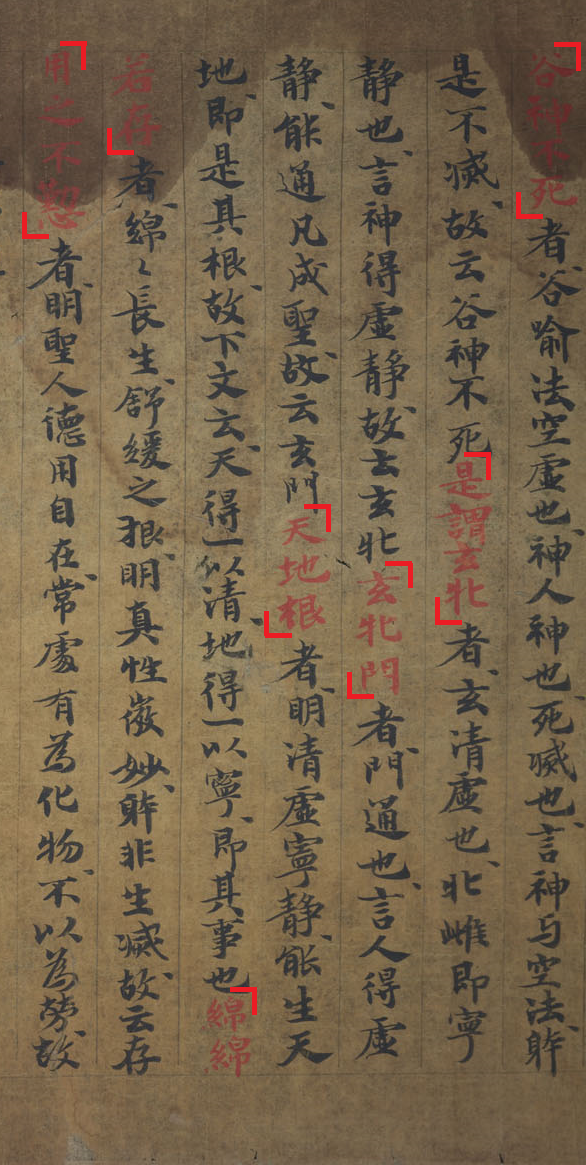 谷神不死者谷喻法空虚也神人神也死滅也言神与空法躰
是不滅故云谷神不死是謂玄牝者玄清虚也牝雌即寧
静也言神得虚静故云玄牝玄牝門者門通也言人得虚
静能通凡成聖故云玄門天地根者明清虚寧静能生天
地即是其根故下文云天得一以清地得一以寧即其事也綿綿
若存者綿〻長生舒緩之狠明真性微妙躰非生滅故云存
用之不懃者明聖人德用自在常處有為化物不以為勞故